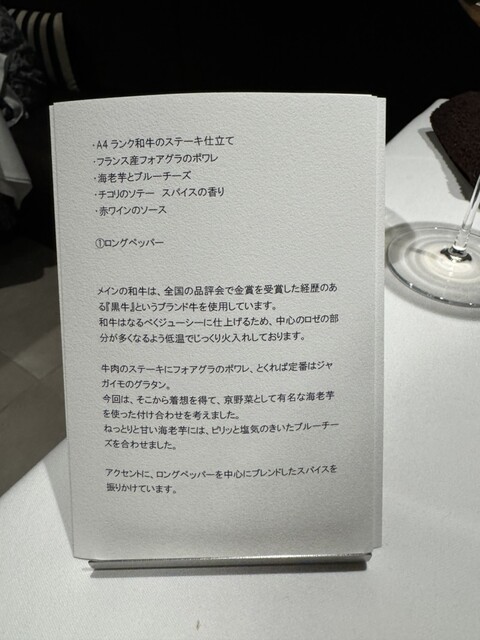 ・A4 ランク和牛のステーキ仕立て
・フランス産フォアグラのポワレ
・海老芋とブルーチーズ
・チコリのソテー　スパイスの香り
・赤ワインのソース
①ロングペッパー
メインの和牛は、全国の品評会で金賞を受賞した経歴のあ
る『黒牛』というブランド牛を使用しています。
和牛はなるべくジューシーに仕上げるため、中心のロゼの部
分が多くなるよう低温でじっくり火入れしております。
牛肉のステーキにフォアグラのポワレ、とくれば定番はジャ
ガイモのグラタン。
今回は、そこから着想を得て、京野菜として有名な海老芋
を使った付け合わせを考えました。
ねっとりと甘い海老芋には、ピリッと塩気のきいたブルーチー
ズを合わせました。
アクセントに、ロングペッパーを中心にブレンドしたスパイスを
振りかけています。